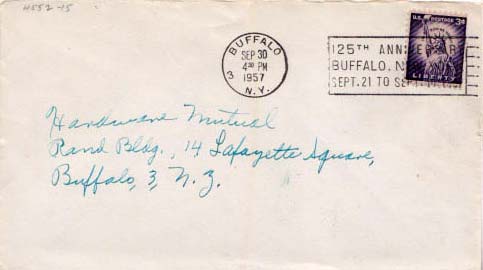 H552-45
BUFFALO
SEP 30
4 30 PM
1957
3
N.Y.
125TH ANNIVERSARY
BUFFALO, N.
SEPT. 21 TO SEPT.
U.S. POSTAGE 3¢
LIBERTY
Hardware Mutual
Rand Bldg., 14 Lafayette Square,
Buffalo, 3, N. Y.